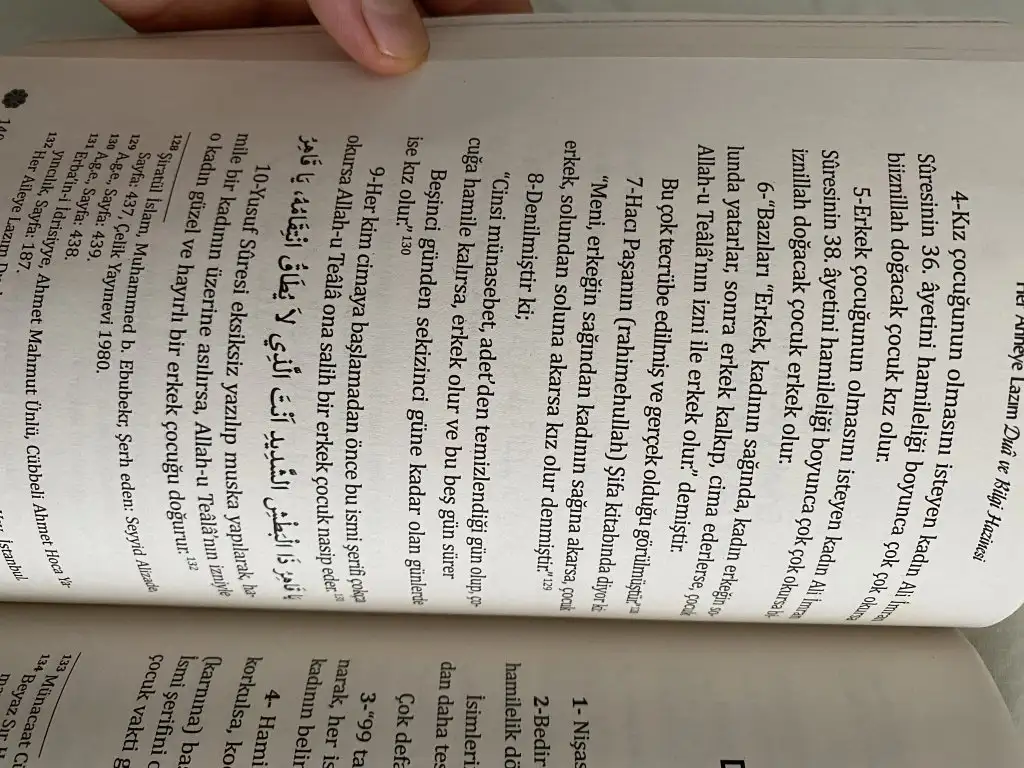 Her Aileye Lazım Duâ ve Bilgi Hazinesi
4-Kız çocuğunun olmasını isteyen kadın Ali İmran
Sûresinin 36. âyetini hamileliği boyunca çok çok okursa
biiznillah doğacak çocuk kız olur.
5-Erkek çocuğunun olmasını isteyen kadın Ali İmran
Sûresinin 38. âyetini hamileliği boyunca çok çok okursa
iznillah doğacak çocuk erkek olur.
6-"Bazıları "Erkek, kadının sağında, kadın erkeğin
lunda yatarlar, sonra erkek kalkıp, cima ederlerse, çocuk
Allah-u Teâlâ'nın izni ile erkek olur." demiştir.
Bu çok tecrübe edilmiş ve gerçek olduğu görülmüştür"128
7-Hacı Paşanın (rahimehullah) Şifa kitabında diyor ki
"Meni, erkeğin sağından kadının sağına akarsa, çocuk
erkek, solundan soluna akarsa kız olur denmiştir."129
8-Denilmiştir ki;
"Cinsi münasebet, adet'den temizlendiği gün olup, ço-
cuğa hamile kalırsa, erkek olur ve bu beş gün sürer
Beşinci günden sekizinci güne kadar olan günlerde
ise kız olur." 130
9-Her kim cimaya başlamadan önce bu ismi şerifi çokça
okursa Allah-u Teâlâ ona salih bir erkek çocuk nasip eder.
يَا قَاهِرُ ذَا الْبَطْشِ الشَّدِيدِ أَنْتَ الَّذِي لَا يُطَاقُ اِنْتِقَامُهُ، يَا قَاهِرُ
10-Yusuf Sûresi eksiksiz yazılıp muska yapılarak, ha-
mile bir kadının üzerine asılırsa, Allah-u Teâlâ'nın izniyle
o kadın güzel ve hayırlı bir erkek çocuğu doğurur. 132
128 Şiratül İslam, Muhammed b. Ebubekr, Şerh eden: Seyyid Alizade,
129 Sayfa: 437, Çelik Yayınevi 1980.
130 A.g.e, Sayfa: 439.
131 A.g.e, Sayfa: 438.
Erba'in-i İdrisiyye, Ahmet Mahmut Ünlü, Cübbeli Ahmet Hoca Ya-
132 yıncılık, Sayfa: 187.
Her Aileye Lazım
İstanbul
140
1- Nişas
2-Bedir
hamilelik dö
İsimleri
dan daha tes
Çok defa
3-"99 ta
narak, her is
kadının belir
4- Hami
korkulsa, ko
(karnına) bas
ismi şerifini
çocuk vakti g
133 Münacaat
134 Beyaz